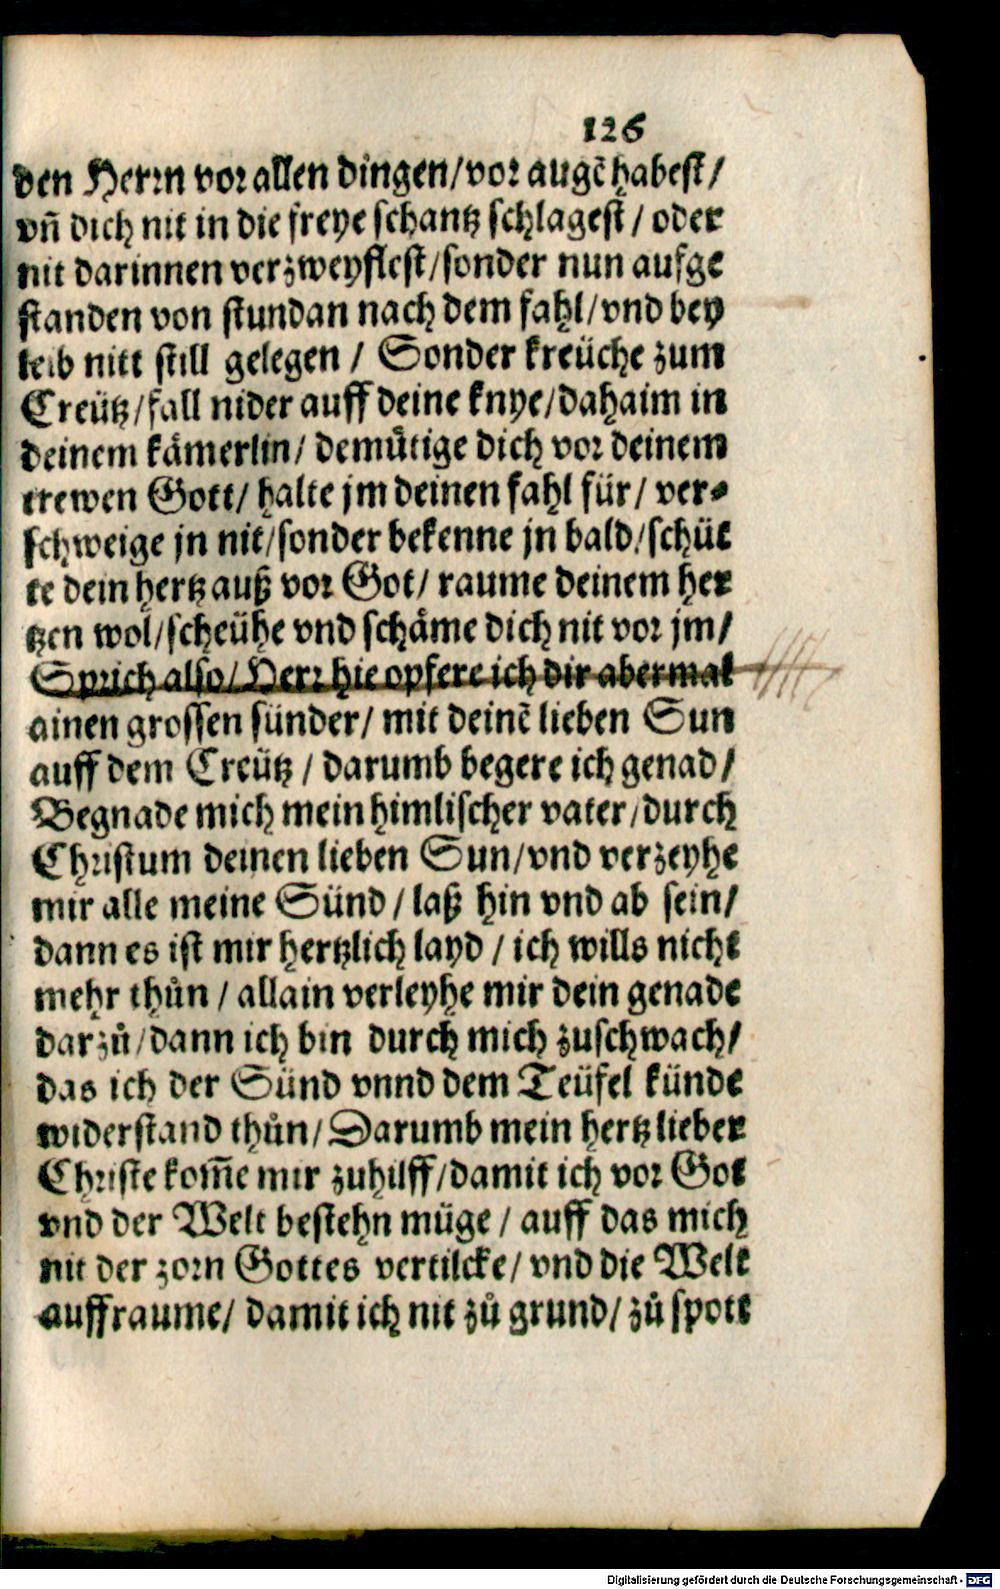 126
den Herrn vor allen dingen/vor augẽ habest/
vñ dich nit in die freye schantz schlagest / oder
nit darinnen verzweyflest/sonder nun aufge
standen von stundan nach dem fahl/vnd bey
leib nitt still gelegen / Sonder kreüche zum
Creütz/fall nider auff deine knye/dahaim in
deinem kämerlin/ demuͤtige dich vor deinem
trewen Gott/ halte jm deinen fahl für/ ver⸗
schweige jn nit/sonder bekenne jn bald/schüt
te dein hertz auß vor Got/ raume deinem her
tzen wol/scheühe vnd schäme dich nit vor jm/
Sprich also/ Herr hie opfere ich dir abermal
ainen grossen sünder/ mit deinẽ lieben Sun
auff dem Creütz / darumb begere ich genad/
Begnade mich mein himlischer vater/durch
Christum deinen lieben Sun/vnd verzeyhe
mir alle meine Sünd / laß hin vnd ab sein/
dann es ist mir hertzlich layd / ich wills nicht
mehr thůn / allain verleyhe mir dein genade
darzů/dann ich bin durch mich zuschwach/
das ich der Sünd vnnd dem Teüfel künde
widerstand thůn/Darumb mein hertz lieber
Christe kom̃e mir zuhilff/damit ich vor Got
vnd der Welt bestehn müge / auff das mich
nit der zorn Gottes vertilcke/ vnd die Welt
auffraume/ damit ich nit zů grund/ zů spott
Digitalisierung gefördert durch die Deutsche Forschungsgemeinschaft - DFG